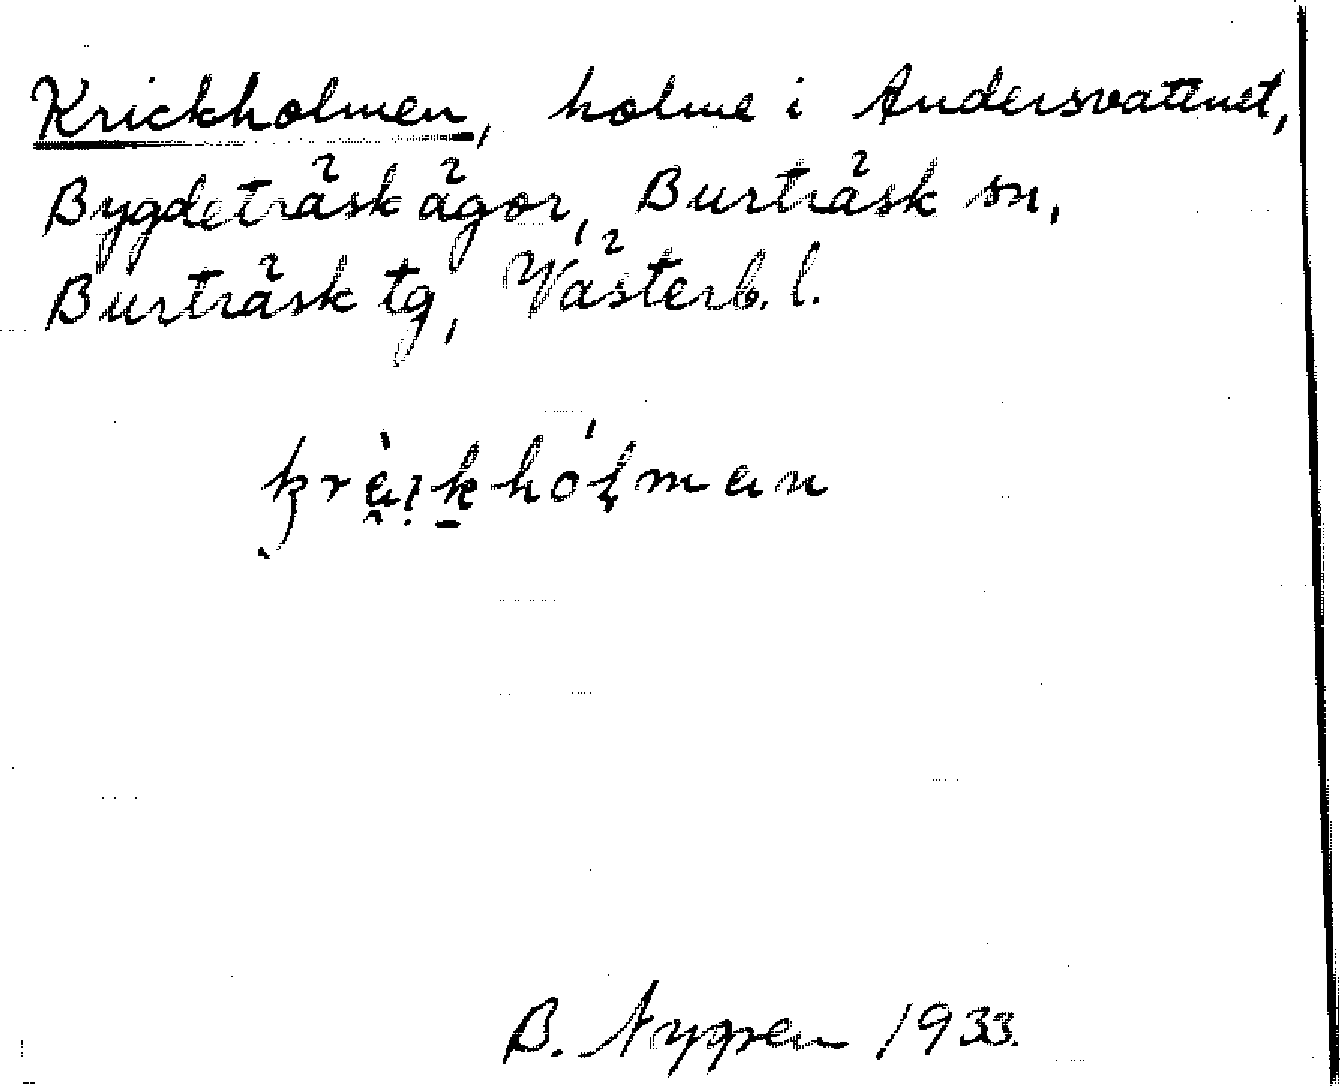 Krickholmen, holme i Andersvattnet,
Bygdeträsk ägor, Burträsk sn,
Burträsk tg, Västerb. l.
B. Nygren 1933.